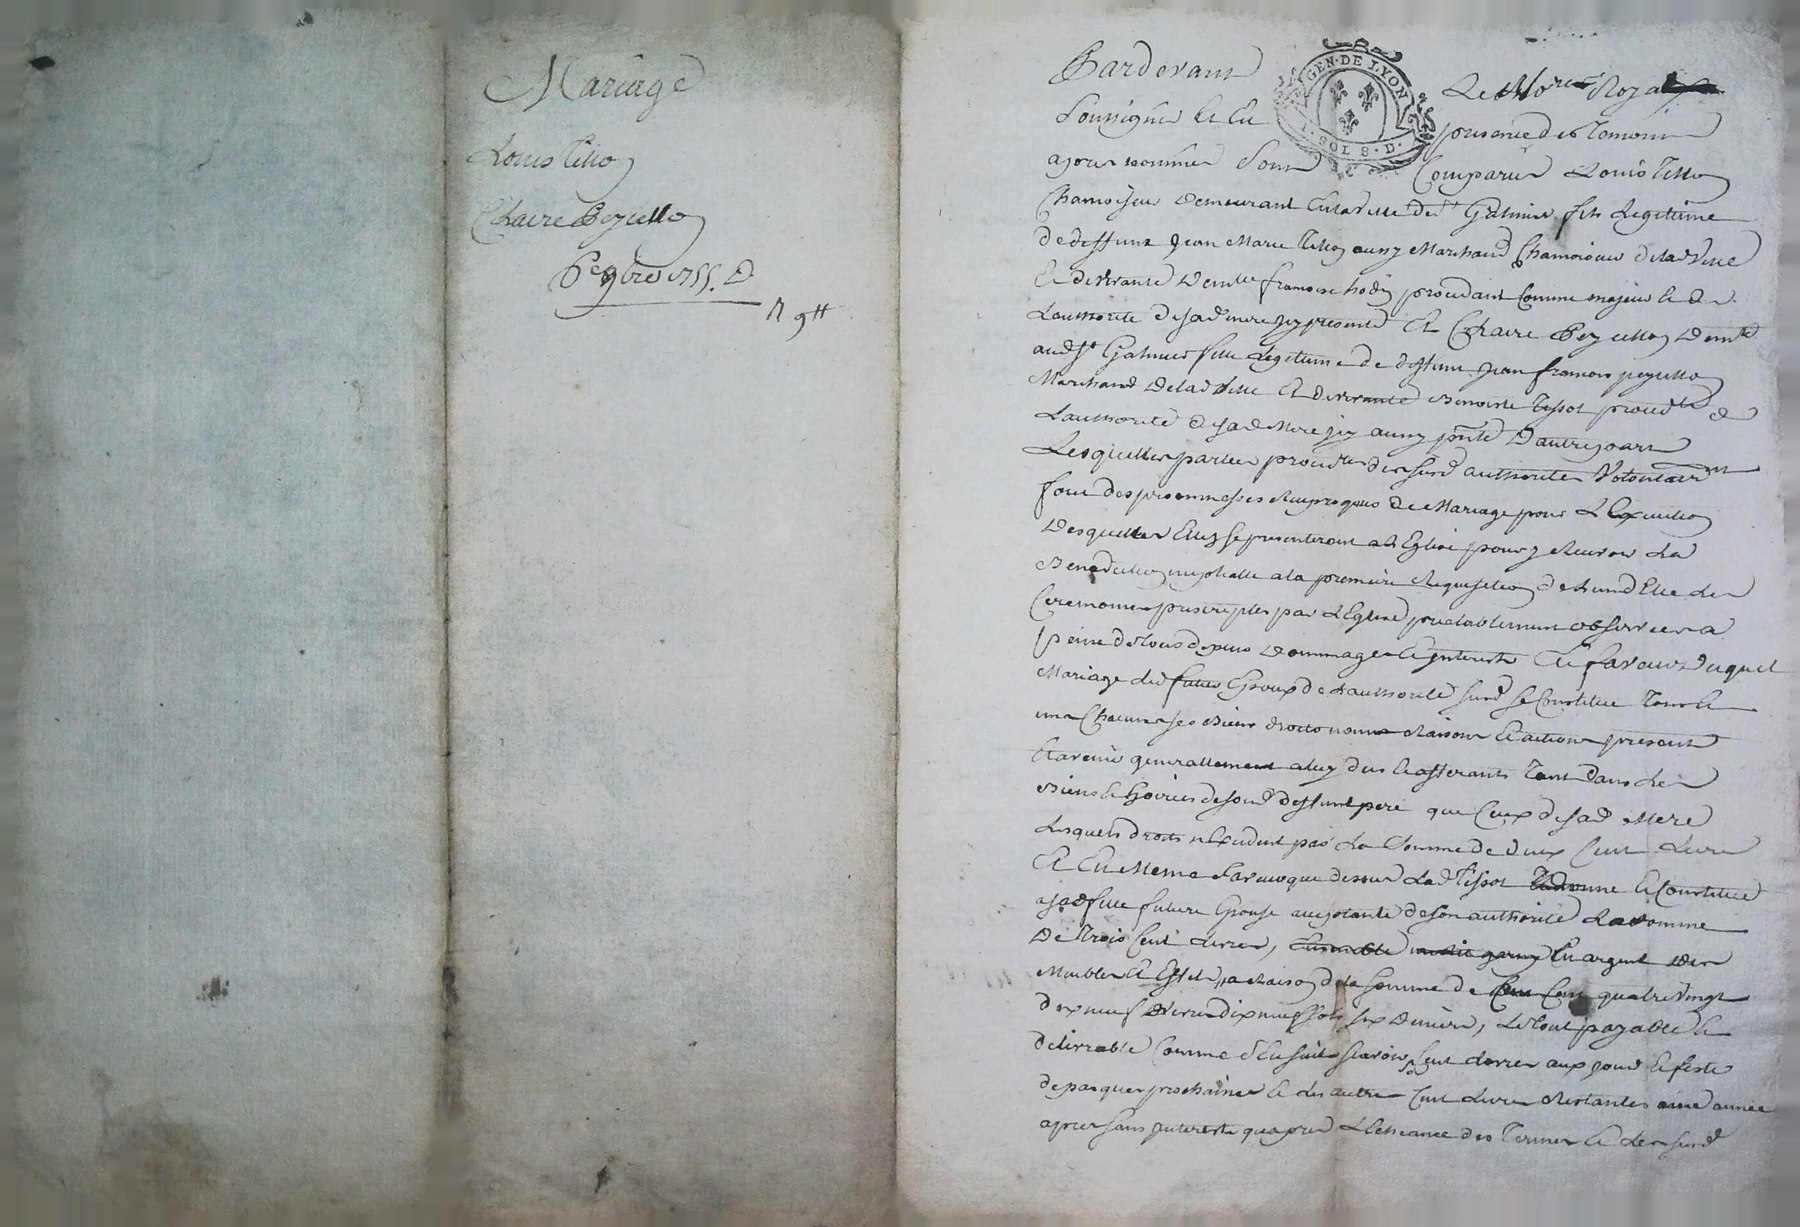 Mariage
Louis Tillo
Claire Peyzello
6e 9bre 1755. D
R 9tt
GEN·DE LYON
1·SOL 8·D·
Pardevant Le No.re Royal
Soussigné Et En presence des Temoins
apres nommés Sont Comparus Louis
Chamoiseur Demeurant En la Ville de St Galmier fils Legitime
de deffunt Jean Marie aussy Marchand Chamoiseur de lad Ville
Et de vivante Dem.lle francoise procedant Comme majeur Et de
L'authorité de sad mere icy presente Et Claire Dem.te
aud St Galmier fille Legitime de deffunt Jean francois
Marchand De lad Ville Et de vivante Benoiste Tissot de
L'authorité de sad Mere icy aussy p.nte D'autre part
Lesquelles parties des susd authorités Volontairem.nt
font des promesses Reciproques de Mariage pour L'Execution
Desquelles Elles se presenteront a l'Eglise pour y Recevoir La
Benediction nuptialle a la premiere Requisition de L'un d'Eux Les
Ceremonies prescriptes par L'Eglise prealablement observées a
peine de tous depens Dommages Et interests En faveur duquel
Mariage led futur Epoux de L'authorité susd se Constitue Tous Et
un Chacuns ses Biens droits noms Raisons Et actions presents
Et avenir generallement a luy dus Et afferants Tant dans Les
Biens Et hoiries de soud deffunt pere que Ceux de sad Mere
Lesquels droits n'Excedent pas La Somme de deux Cent Livres
Et En Meme faveur que dessus Lad Tissot donne Et Constitue
a sad fille future Epouse de son authorité La somme
De Trois Cent Livres, En argent Des
Meubles Et Effets, a Raison de la somme de Cent quatre Vingt
dix neuf Livres dix neuf sols six Deniers, Le tout payable Et
delivrable Comme S'Ensuit scavoir Cent Livres aux jour Et feste
de paques prochaines Et Les autres Cent Livres Restantes une année
apres sans interests qu'apres L'Echeance des Termes Et Les susd